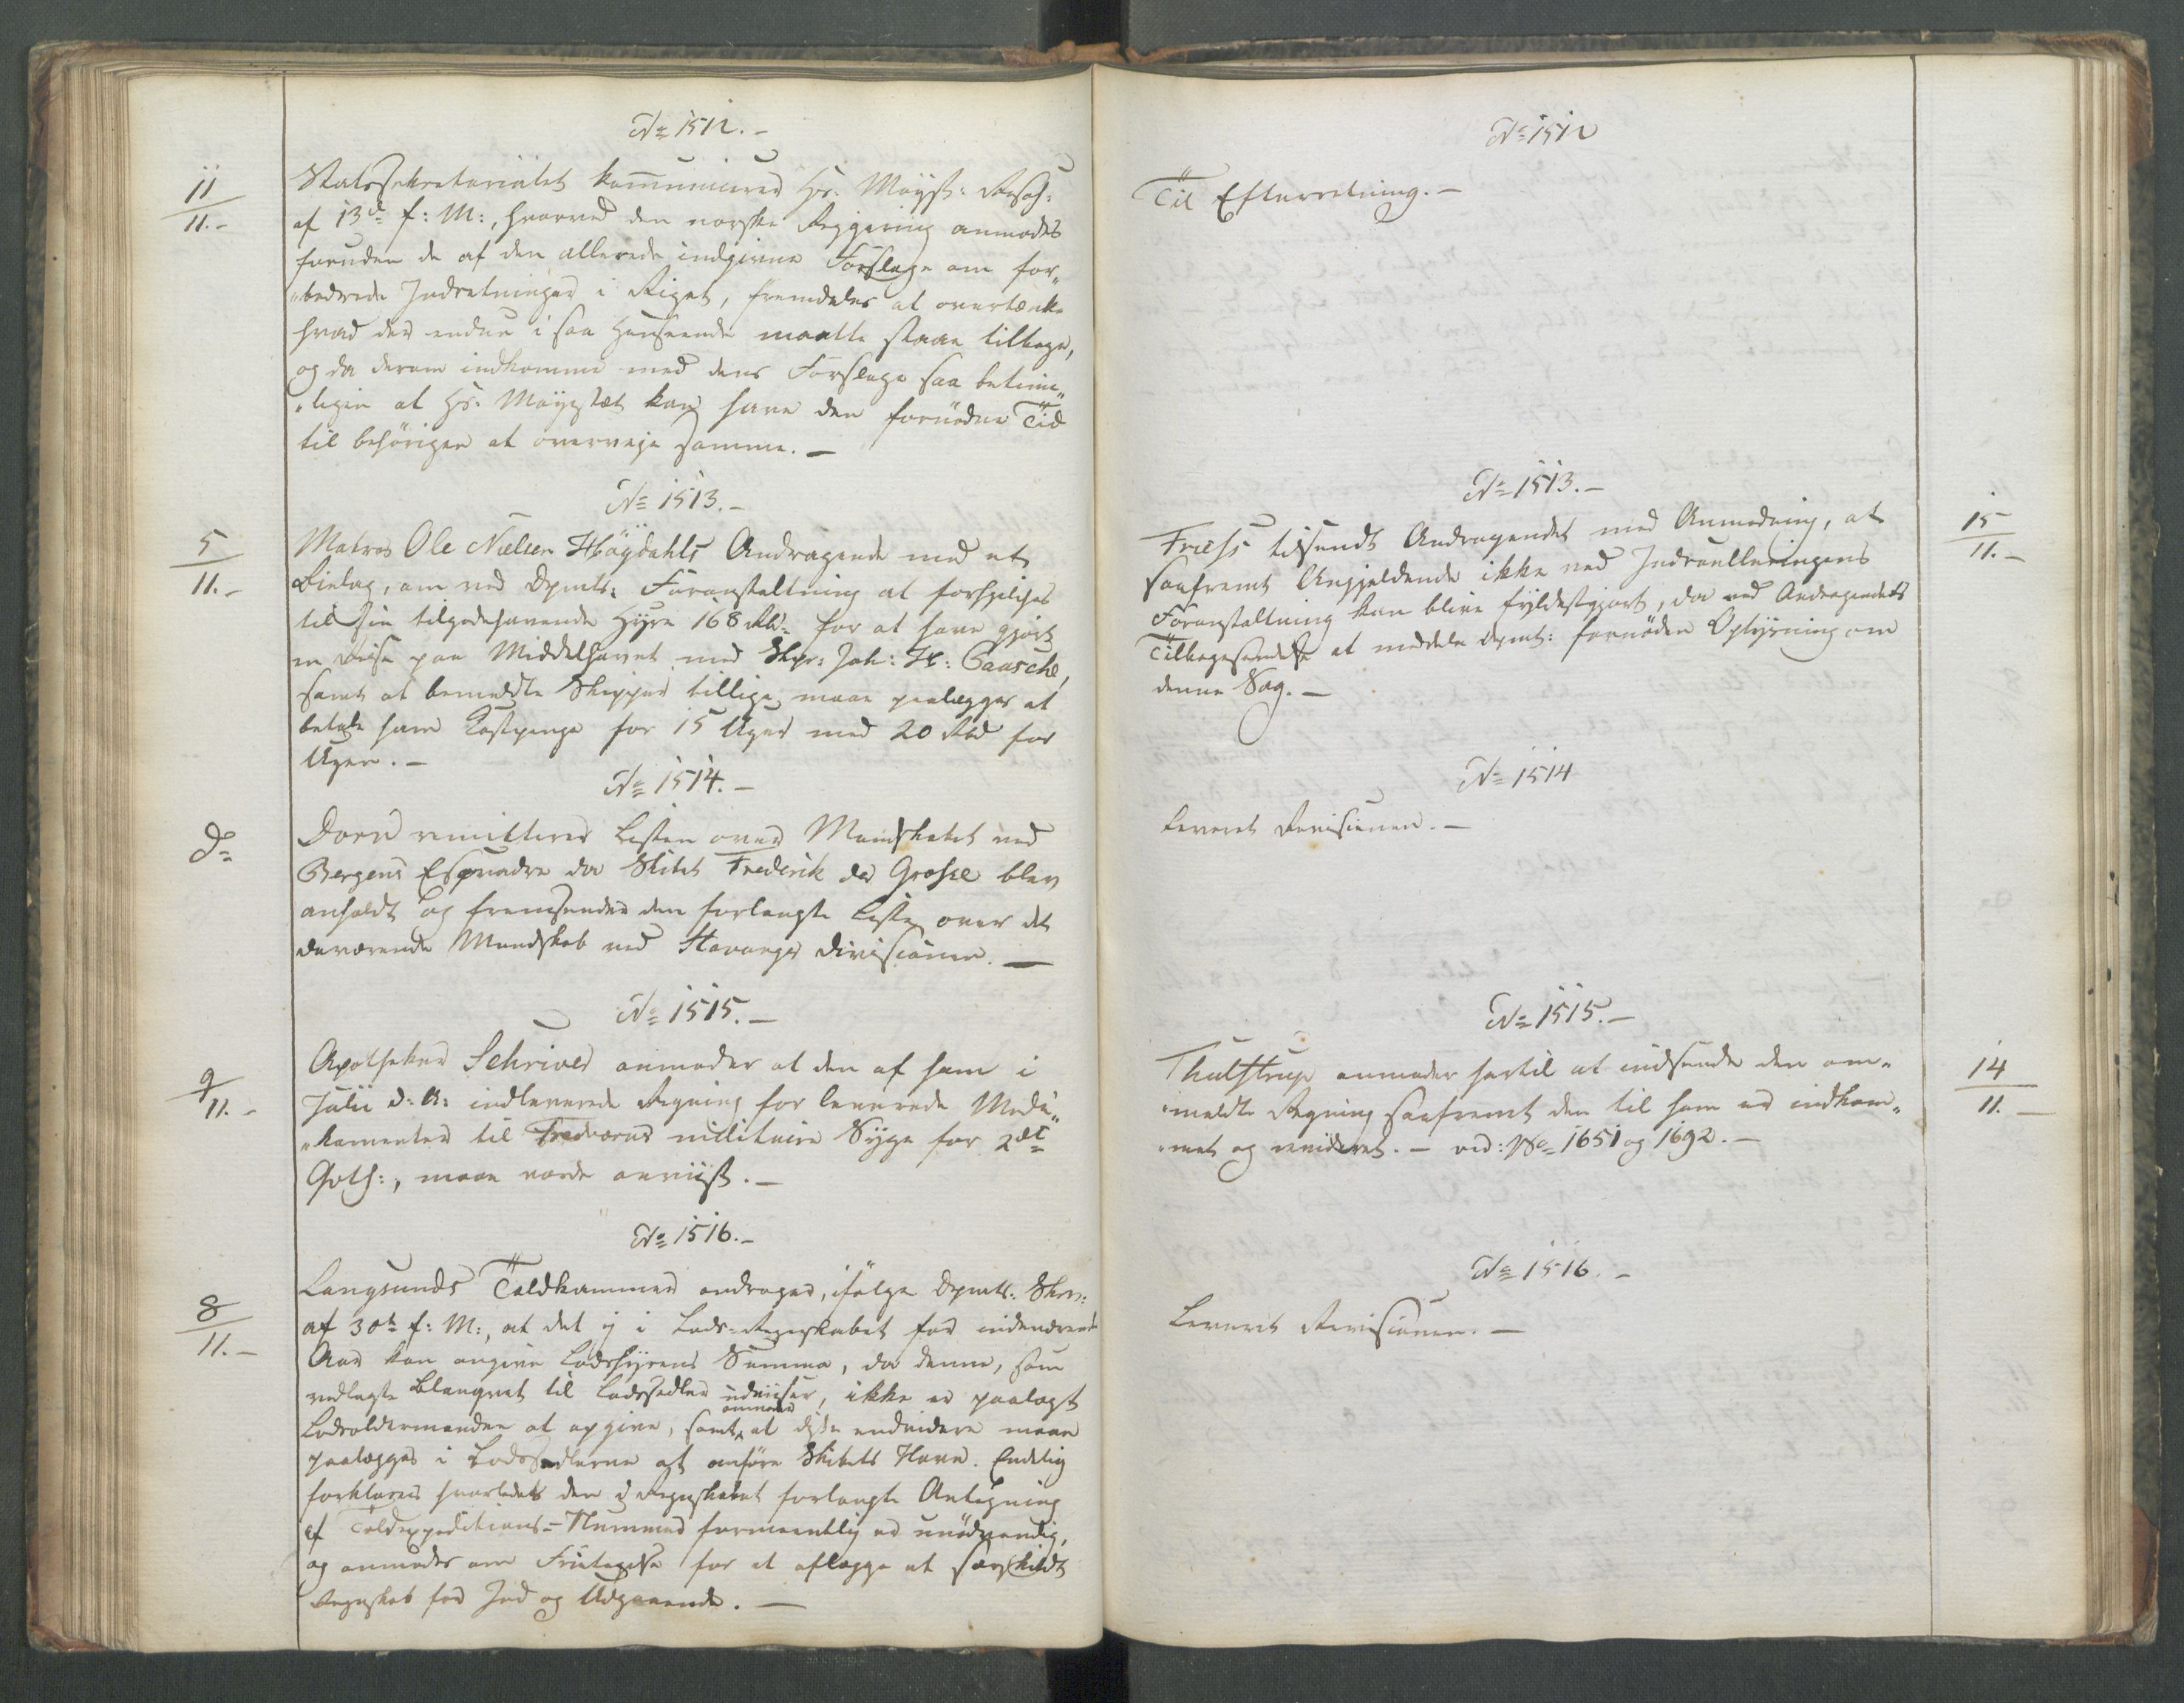 No 1512.-
11
11.-
Statssekretariatet kommunicerer Hs. Mayst: Resol:
af 13de f: M:, hvorved den norske Regjering anmodes
foruden de af den allerede indgivne Forslage om for„
„bedrede Indretninger i Riget, fremdeles at overtænke
hvad der endnu i saa Henseende maatte staae tilbage,
og da derom indkomme med dens Forslage saa betime„
„ligen at Hs. Mayestæt kan have den fornødne Tid
til behörigen at overveje samme. -
No 1513.-
5
11.-
Matros Ole Nielsen Höÿdahls Andragende med et
Bielag, om ved Dpmts: Foranstaltning at forhjelpes
til sin tilgodehavende Hyre 168 Rbd. for at have gjort
en Reise paa Middelhavet med Skpr: Joh: H: Gaasche,
samt at bemeldte Skipper tillige maae paalægges at
betale ham Kostpenge for 15 Uger med 20 Rbd for
Ugen. -
No 1514. -
do
Dorn remitterer Listen over Mandskabet ved
Bergens Esquadre da Skibet Frederik der Grosse blev
anholdt og fremsender den forlangte Liste over det
daværende Mandskab ved Stavanger Divisionen. -
No 1515. -
9
11.-
Apotheker Schriver anmoder at den af ham i
Julii d: A: indleverede Regning for leverede Medi„
„kamenter til Fredværns militaire Syge for 2det
Qvth:, maae vorde anviist. -
No 1516.-
8
11.-
Langsunds Toldkammer andrager, ifölge Dpmts. Skriv:
af 30te f: M:, at det ej i Lods-Regnskabet for indeværende
Aar kan angive Lodshyrens Summa, da denne, som
vedlagte Blanqvet til Lodssedler udviiser, ikke er paalagt
Lodsoldermanden at opgive, samt anmoder at disse endvidere maae
paalægges i Lodssedlerne at anföre Skibets Navn. Endelig
forklares hvorledes den i Regnskabet forlangte Antegning
af Toldexpeditions-Nummer formeentlig er unödvendig,
og anmodes om Fritagelse for at aflægge et særskildt
Regnskab for Ind og Udgaaende. -
No 1512
Til Efterretning. -
No 1513. -
15
11.-
Friess tilsendt Andragendet med Anmodning, at
saafremt Angjeldende ikke ved Indroulleringens
Foranstaltning kan blive fyldestgjort, da ved Andragendets
Tilbagesendelse at meddele Dpmt: fornöden Oplysning om
denne Sag. -
No 1514
Leveret Revisionen. -
No 1515. -
14
11. -
Thulstrup anmodes hertil at indsende den om„
„meldte Regning saafremt den til ham er indkom„
„met og revideret. - vid: No 1651 og 1692. -
No 1516. -
Leveret Revisionen. -